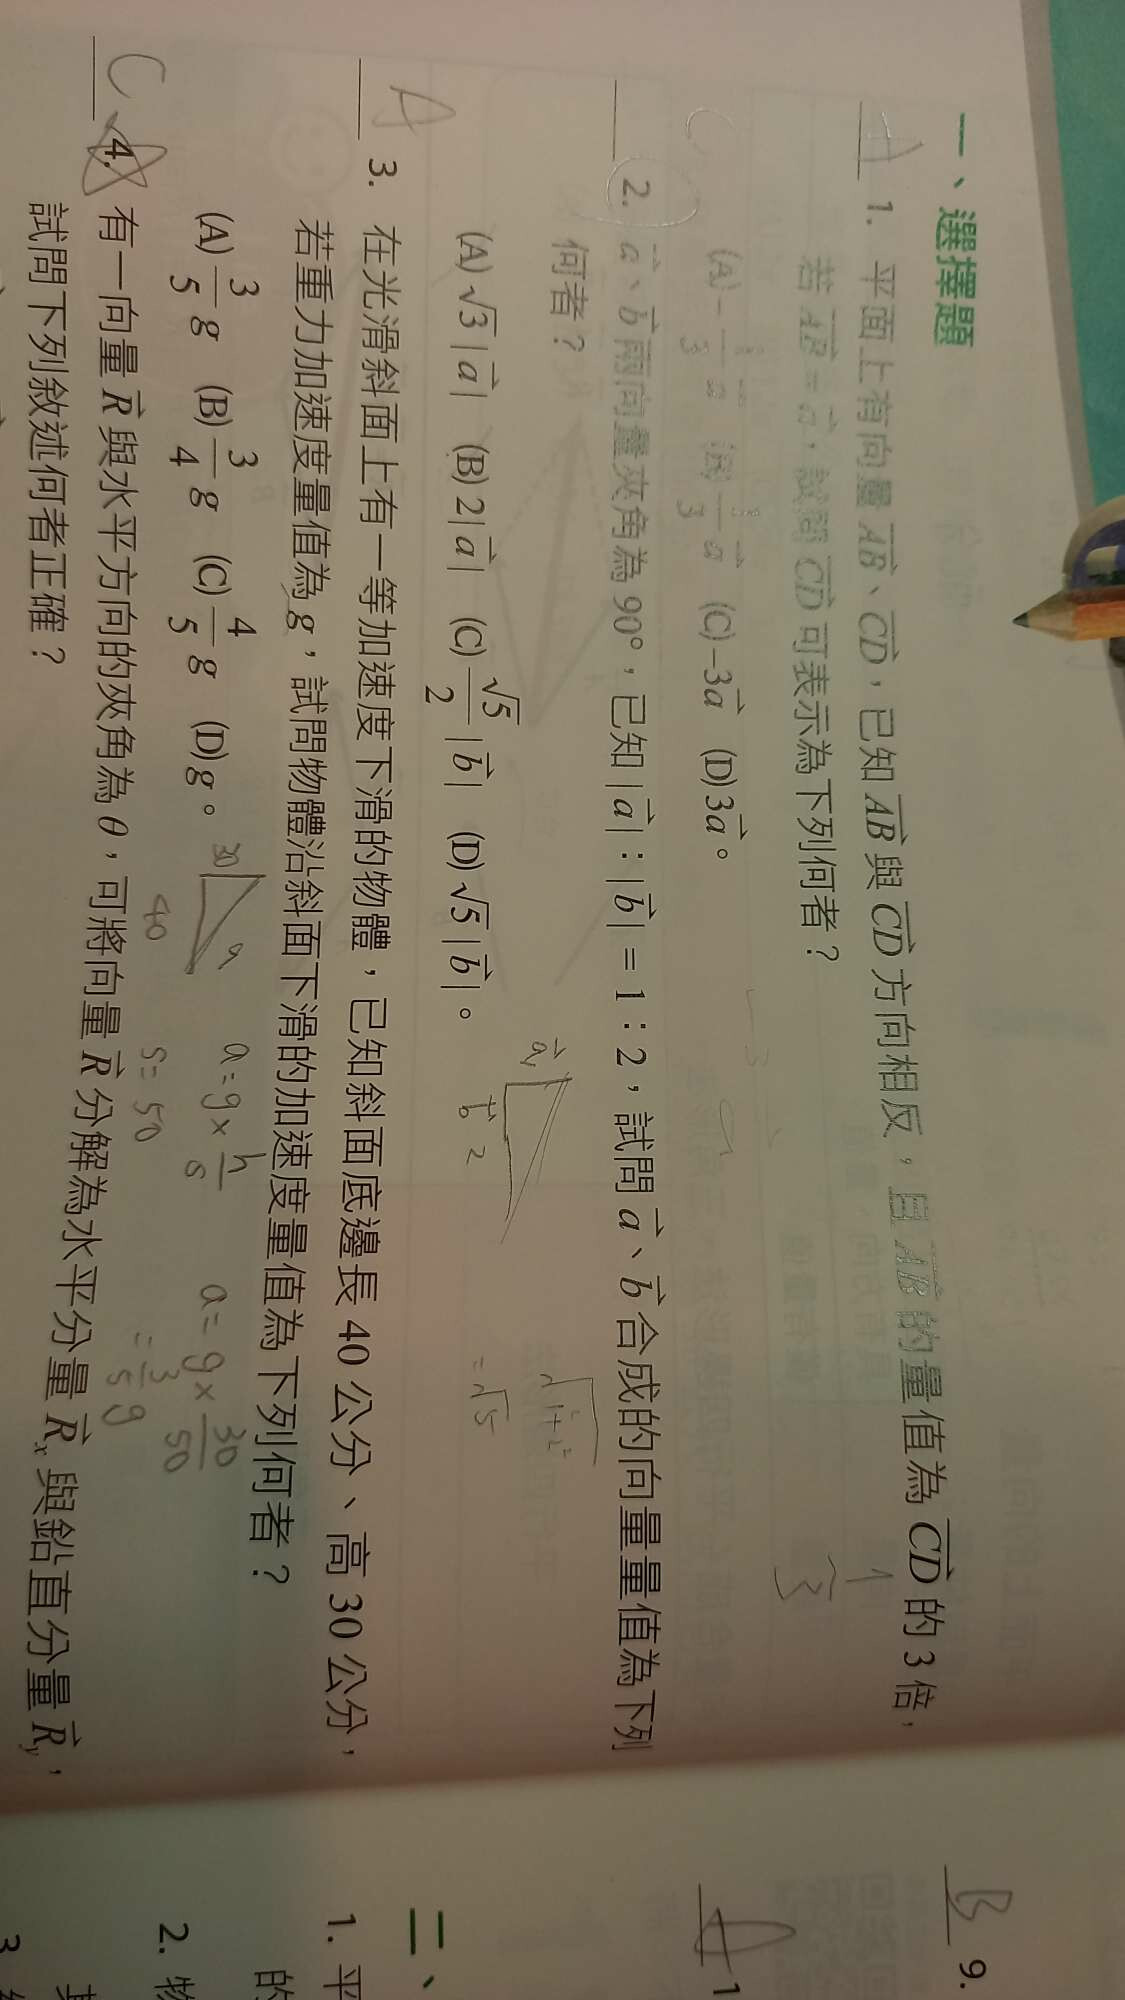 一、選擇題
A 1. 平面上有向量 $\overrightarrow{AB}$、$\overrightarrow{CD}$，已知 $\overrightarrow{AB}$ 與 $\overrightarrow{CD}$ 方向相反，且 $\overrightarrow{AB}$ 的量值為 $\overrightarrow{CD}$ 的 3 倍，
若 $\overrightarrow{AB}=\vec{a}$，試問 $\overrightarrow{CD}$ 可表示為下列何者？
(A)$-\frac{1}{3}\vec{a}$ (B)$\frac{1}{3}\vec{a}$ (C)$-3\vec{a}$ (D)$3\vec{a}$。
C
2. $\vec{a}$、$\vec{b}$ 兩向量夾角為 90°，已知 $|\vec{a}|:|\vec{b}|=1:2$，試問 $\vec{a}$、$\vec{b}$ 合成的向量量值為下列
何者？
(A)$\sqrt{3}|\vec{a}|$ (B)$2|\vec{a}|$ (C)$\frac{\sqrt{5}}{2}|\vec{b}|$ (D)$\sqrt{5}|\vec{b}|$。
$\vec{a}$ 1
$\vec{b}$ 2
$\sqrt{1^2+2^2}$
$=\sqrt{5}$
A 3. 在光滑斜面上有一等加速度下滑的物體，已知斜面底邊長 40 公分、高 30 公分，
若重力加速度量值為 g，試問物體沿斜面下滑的加速度量值為下列何者？
(A)$\frac{3}{5}g$ (B)$\frac{3}{4}g$ (C)$\frac{4}{5}g$ (D)g。
30
40
a
$a=g\times\frac{h}{s}$
s=50
$a=g\times\frac{30}{50}$
$=\frac{3}{5}g$
C 4. 有一向量 $\vec{R}$ 與水平方向的夾角為 θ，可將向量 $\vec{R}$ 分解為水平分量 $\vec{R}_x$ 與鉛直分量 $\vec{R}_y$，
試問下列敘述何者正確？
B 9.
A 1
二、
1. 平
的
2. 物
3